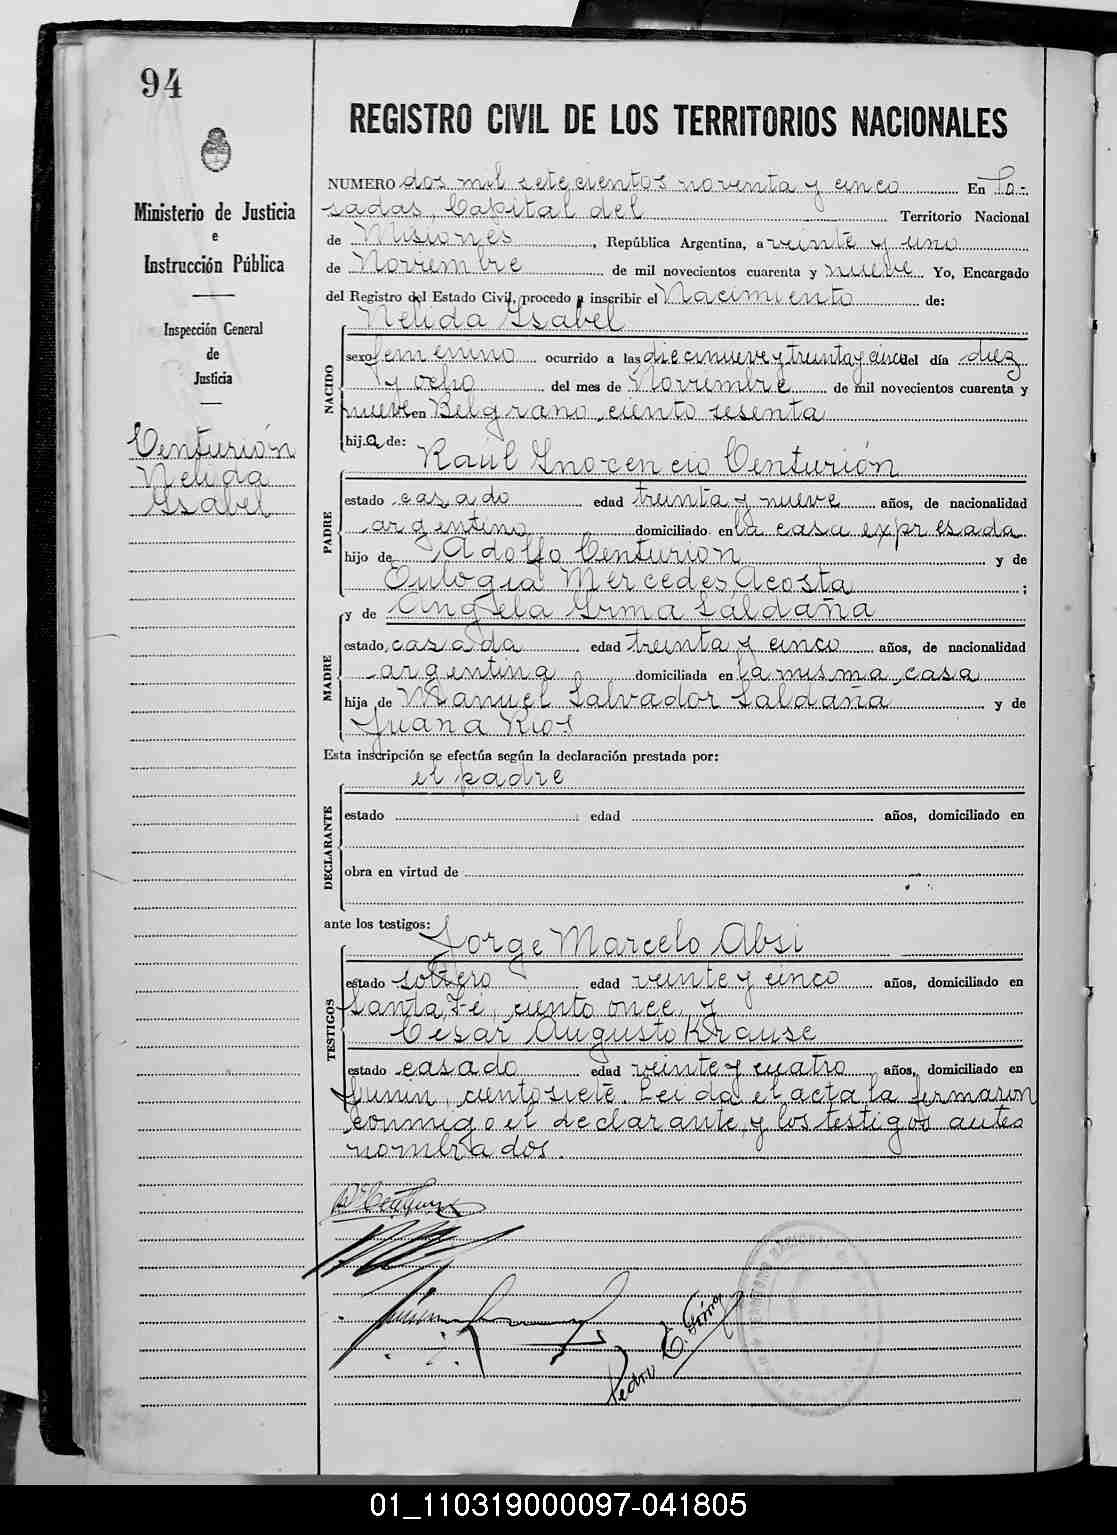 94
REGISTRO CIVIL DE LOS TERRITORIOS NACIONALES
Ministerio de Justicia
e
Instrucción Pública
Inspección General
de
Justicia
Centurión
Nelida
Isabel
NUMERO dos mil setecientos noventa y cinco En Po-
sadas, Capital del Territorio Nacional
de Misiones, República Argentina, a veinte y uno
de Noviembre de mil novecientos cuarenta y nueve Yo, Encargado
del Registro del Estado Civil, procedo a inscribir el Nacimiento de:
Nelida Isabel
NACIDO
sexo femenino ocurrido a las diecinueve y treinta y cinco del día diez
y ocho del mes de Noviembre de mil novecientos cuarenta y
nueve en Belgrano, ciento sesenta
hija de: Raúl Inocencio Centurión
PADRE
estado casado edad treinta y nueve años, de nacionalidad
argentino domiciliado en la casa expresada
hijo de Adolfo Centurión y de
Eulogia Mercedes Acosta ;
y de Angela Irma Saldaña
MADRE
estado casada edad treinta y cinco años, de nacionalidad
argentina domiciliada en la misma casa
hija de Manuel Salvador Saldaña y de
Juana Rios
Esta inscripción se efectúa según la declaración prestada por:
el padre
DECLARANTE
estado : edad años, domiciliado en
obra en virtud de
ante los testigos: Jorge Marcelo Absi
TESTIGOS
estado soltero edad veinte y cinco años, domiciliado en
Santa Fé, ciento once, y
Cesar Augusto Krause
estado casado edad veinte y cuatro años, domiciliado en
Junin, ciento siete. Leida el acta la firmaron
conmigo el declarante, y los testigos antes
nombrados.
Pedro E.
01_110319000097-041805